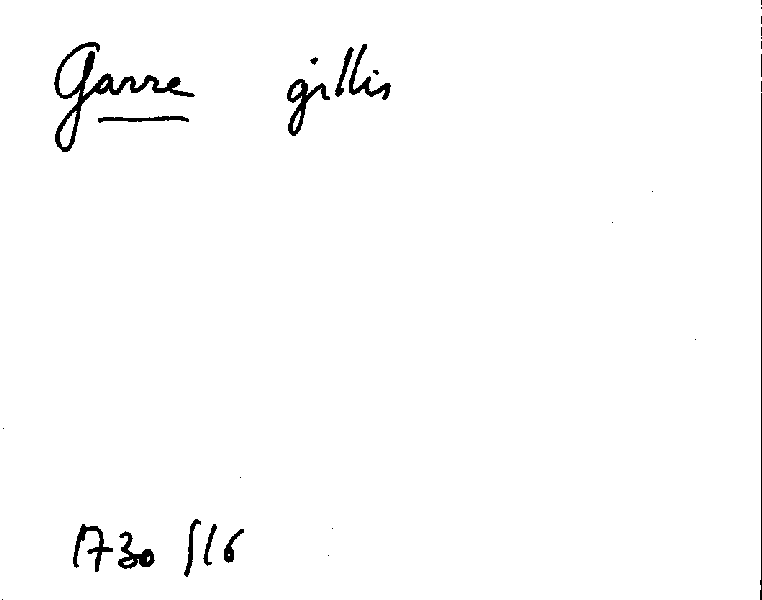 Garre gillis
1730 516